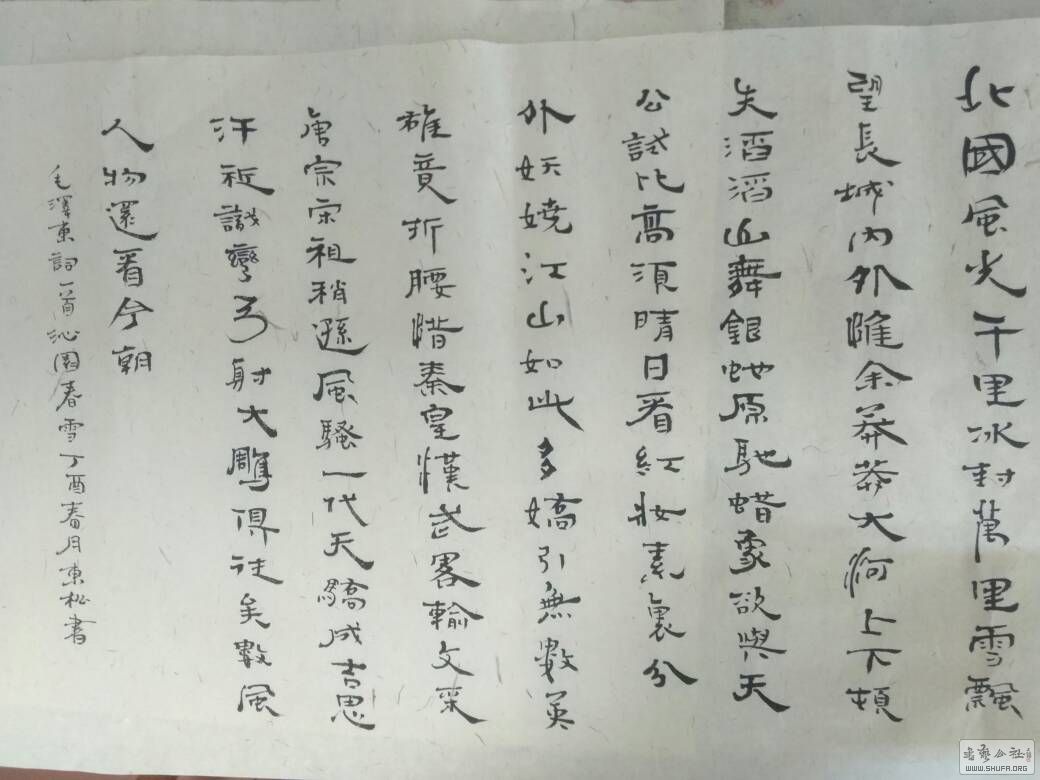 北國風光千里冰封萬里雪飄
望長城內外惟余莽莽大河上下頓
失滔滔山舞銀蛇原馳蜡象欲與天
公試比高須晴日看紅妝素裹分
外妖嬈江山如此多嬌引無數英
雄竟折腰惜秦皇漢武畧輸文采
唐宗宋祖稍遜風騷一代天驕成吉思
汗祗識彎弓射大鵰俱往矣數風
人物還看今朝
毛澤東詞一首沁園春雪丁酉春月東松書
書藝公社
WWW.SHUFA.ORG